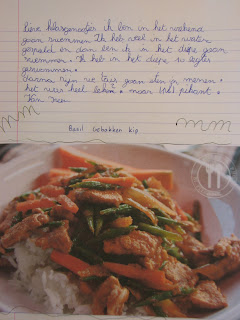 Lieve klasgenootjes ik ben in het weekend
gaan zwemmen. Ik heb veel in het water
gespeeld en dan ben ik in het diepe gaan
zwemmen. Ik heb in het diepe 10 lengtes
gezwommen.
Daarna zijn we thuis gaan eten en mama
het was heel lekker maar snel pikant.
Van
Basil Gebakken kip